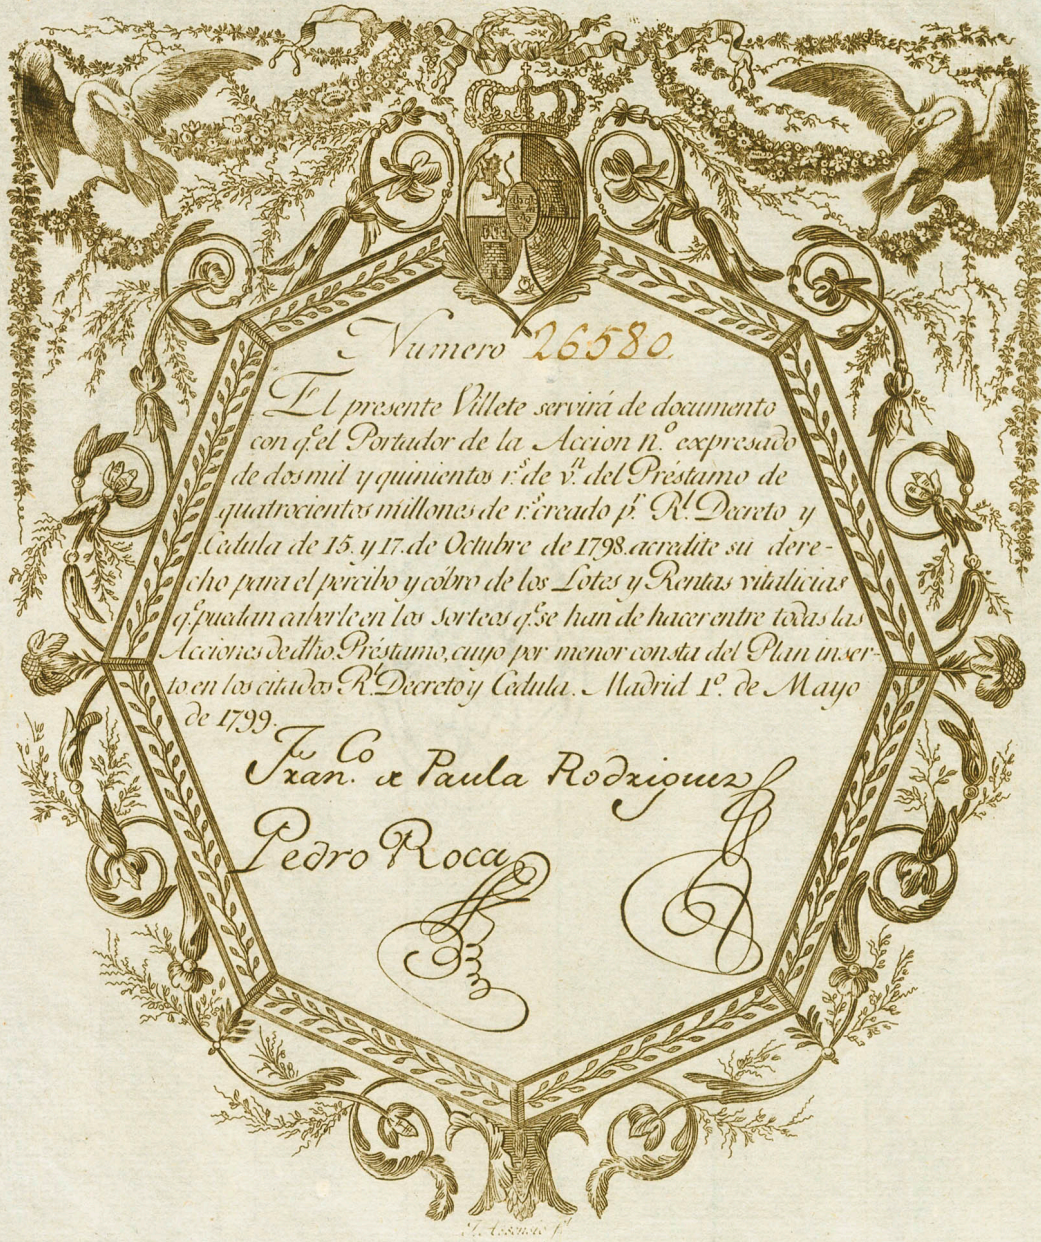 Numero 26580.
El presente Villete servirá de documento
con q.e el Portador de la Accion n.o expresado
de dos mil y quinientos r.s de v.n del Préstamo de
quatrocientos millones de r.s creado p.r R.l Decreto y
Cedula de 15. y 17. de Octubre de 1798. acredite su dere-
cho para el percibo y cobro de los Lotes y Rentas vitalicias
q.e puedan caberle en los sorteos q.e se han de hacer entre todas las
Acciones de dho. Préstamo, cuyo por menor consta del Plan inser-
to en los citados R.l Decreto y Cedula. Madrid 1.o de Mayo
de 1799.
Fran.co de Paula Rodriguez
Pedro Roca
J. Assensio f.t